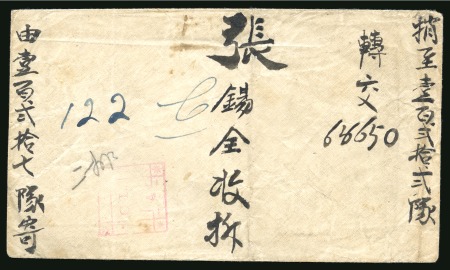 捎至壹百弍拾弍隊
轉交
68650
張錫全收拆
122
由壹百弍拾七隊寄